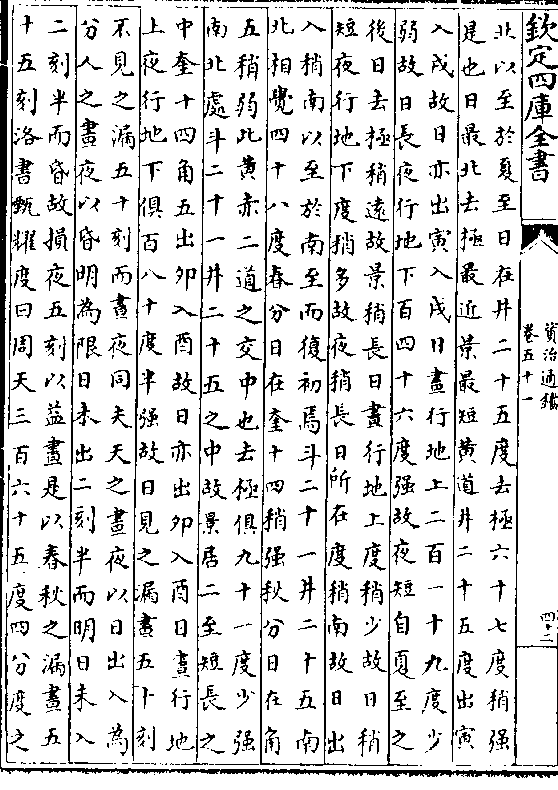 欽定四庫全書
資治通鑑
卷五十一
四十二
北以至於夏至日在井二十五度去極六十七度稍强
是也日最北去極最近景最短黄道井二十五度出寅
入戌故日亦出寅入戌日晝行地上二百一十九度少
弱故日長夜行地下百四十六度强故夜短自夏至之
後日去極稍逺故景稍長日晝行地上度稍少故日稍
短夜行地下度稍多故夜稍長日所在度稍南故日出
入稍南以至於南至而復初焉斗二十一井二十五南
北相覺四十八度春分日在奎十四稍强秋分日在角
五稍弱此黄赤二道之交中也去極俱九十一度少强
南北處斗二十一井二十五之中故景居二至短長之
中奎十四角五出夘入酉故日亦出夘入酉日晝行地
上夜行地下俱百八十度半强故日見之漏晝五十刻
不見之漏五十刻而晝夜同夫天之晝夜以日出入為
分人之晝夜以昏明為限日未出二刻半而明日未入
二刻半而昏故損夜五刻以益晝是以春秋之漏晝五
十五刻洛書甄耀度曰周天三百六十五度四分度之